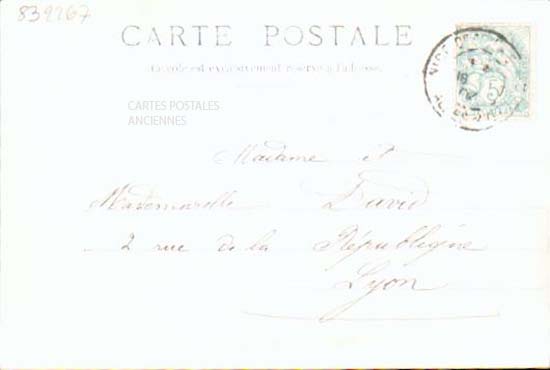 839267
CARTE POSTALE
Ce côté est exclusivement réservé à l'adresse
CARTES POSTALES
ANCIENNES
5
Madame et
Mademoiselle David
2 rue de la République
Lyon